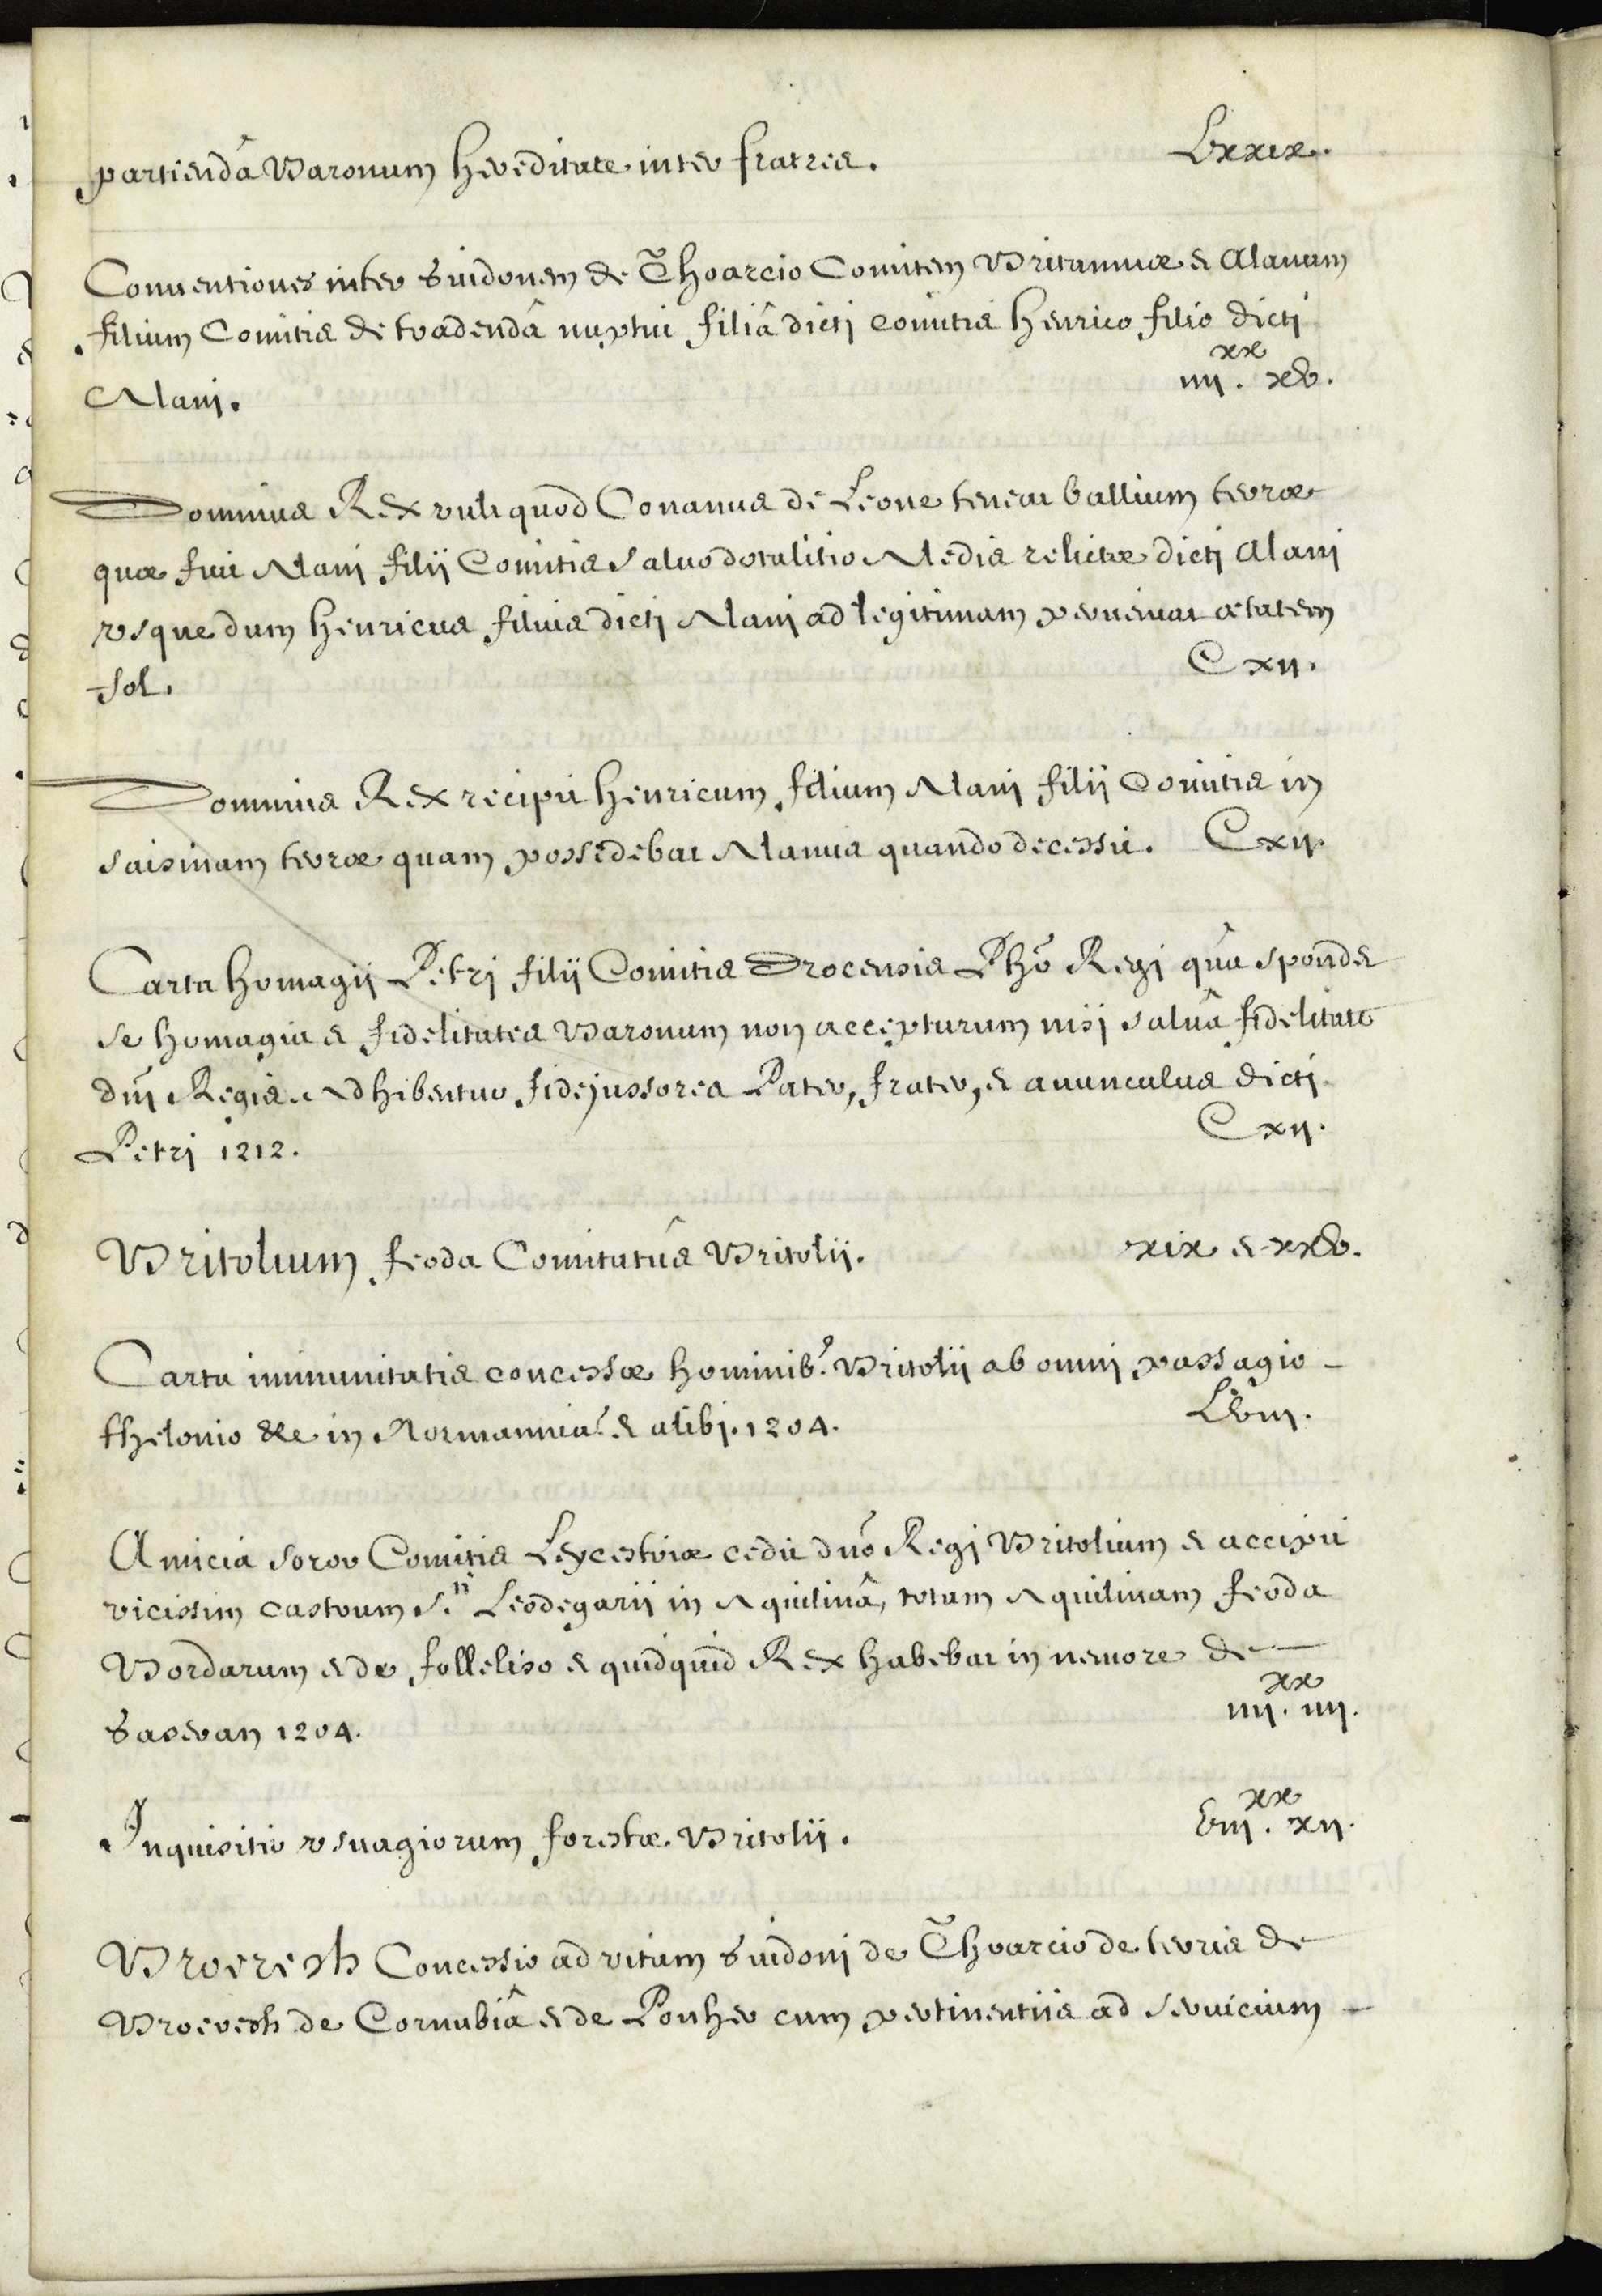 partiendâ Baronum hereditate inter fratres. Lxxix.
Conuentiones inter Guidonem de Thoarcio Comitem Britanniæ & Alanum
filium Comitis de tradendâ nuptui filiâ dicti comitis henrico filio dicti
Alani. iiij^xx. xv.
Dominus Rex vult quod Conanus de Leone teneat ballium terræ
quæ fuit Alani filij Comitis saluo dotalitio Aledis relictæ dicti Alani
vsque dum henricus filius dicti Alani ad legitimam perueniat ætatem
fol. Cxij.
Dominus Rex recipit henricum filium Alani filij Comitis in
saisinam terræ quam possidebat Alanus quando decessit. Cxij.
Carta homagij Petri filij Comitis Drocensis Phō Regi quâ spondet
se homagia & fidelitates Baronum non accepturum nisi saluâ fidelitate
dn̄i Regis. Adhibentur fidejussores Pater, frater, & auunculus dicti
Petri 1212. Cxij.
Britolium feoda Comitatûs Britolij. xix & xxv.
Carta immunitatis concessæ hominib? Britolij ab omni passagio
thelonio &c in Normannia? & alibj. 1204. Lviij.
Amicia soror Comitis Leycestriæ cedit dn̄o Regi Britolium & accipit
vicissim castrum S.^ti Leodegarij in Aquilinâ, totam Aquilinam feoda
Bordarum & de folleliso & quidquid Rex habebat in nemore de
Gaseran 1204. iiij^xx. iiij.
Inquisitio vsuagiorum forestæ Britolij. viij^xx. xij.
Broeresh Concessio ad vitam Guidoni de Thoarcio de terris de
Broeresh de Cornubiâ & de Ponher cum pertinentiis ad seruicium